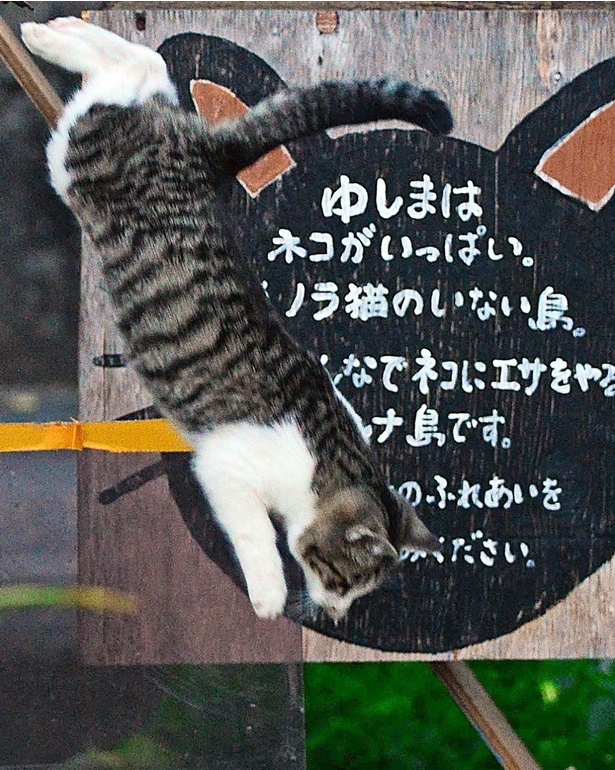 ゆしまは
ネコがいっぱい。
ノラ猫のいない島。
んなでネコにエサをやる
ナ島です。
のふれあいを
ください。